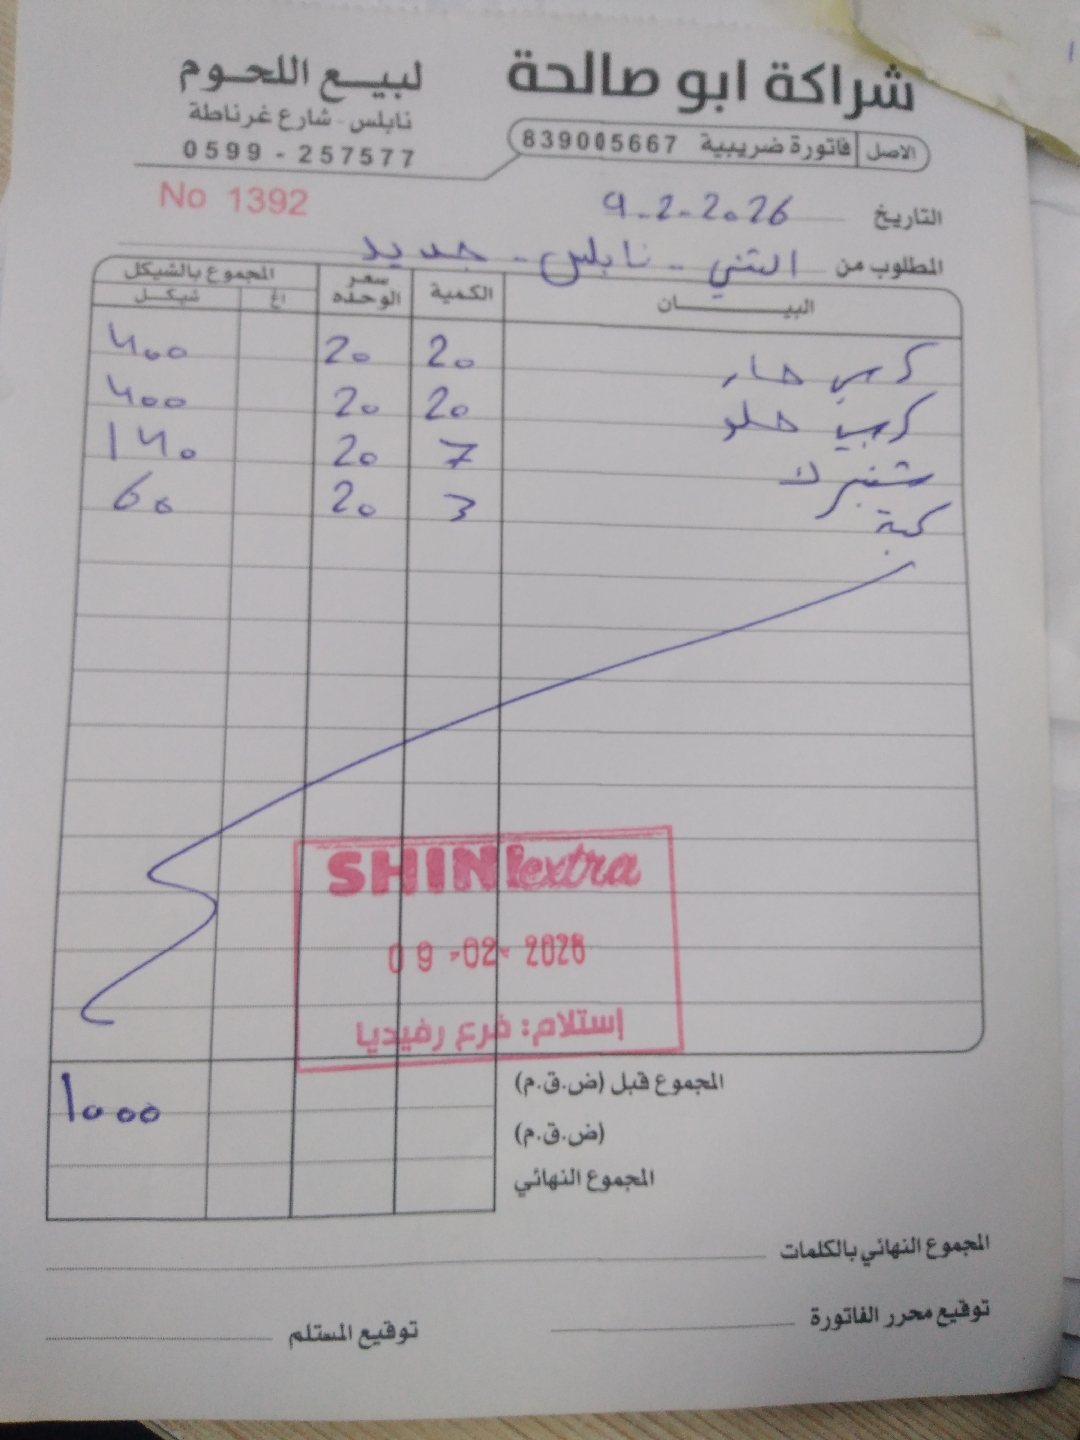 شراكة ابو صالحة
لبيع اللحوم
نابلس - شارع غرناطة
الاصل فاتورة ضريبية 839005667
0599 - 257577
No 1392
التاريخ 9-2-2026
المطلوب من التني - نابلس - جديد
البيان الكمية سعر الوحده المجموع بالشيكل
اغ شيكل
كبي حار 20 20 400
كبي حلو 20 20 400
ششبرك 7 20 140
كبة 3 20 60
SHINI extra
09-02-2026
إستلام: فرع رفيديا
المجموع قبل (ض.ق.م) 1000
(ض.ق.م)
المجموع النهائي
المجموع النهائي بالكلمات
توقيع محرر الفاتورة
توقيع المستلم